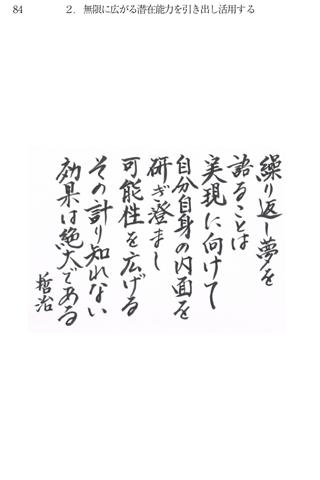 84
2．無限に広がる潜在能力を引き出し活用する
繰り返し夢を
語ることは
実現に向けて
自分自身の内面を
研ぎ澄まし
可能性を広げる
その計り知れない
効果は絶大である
哲治